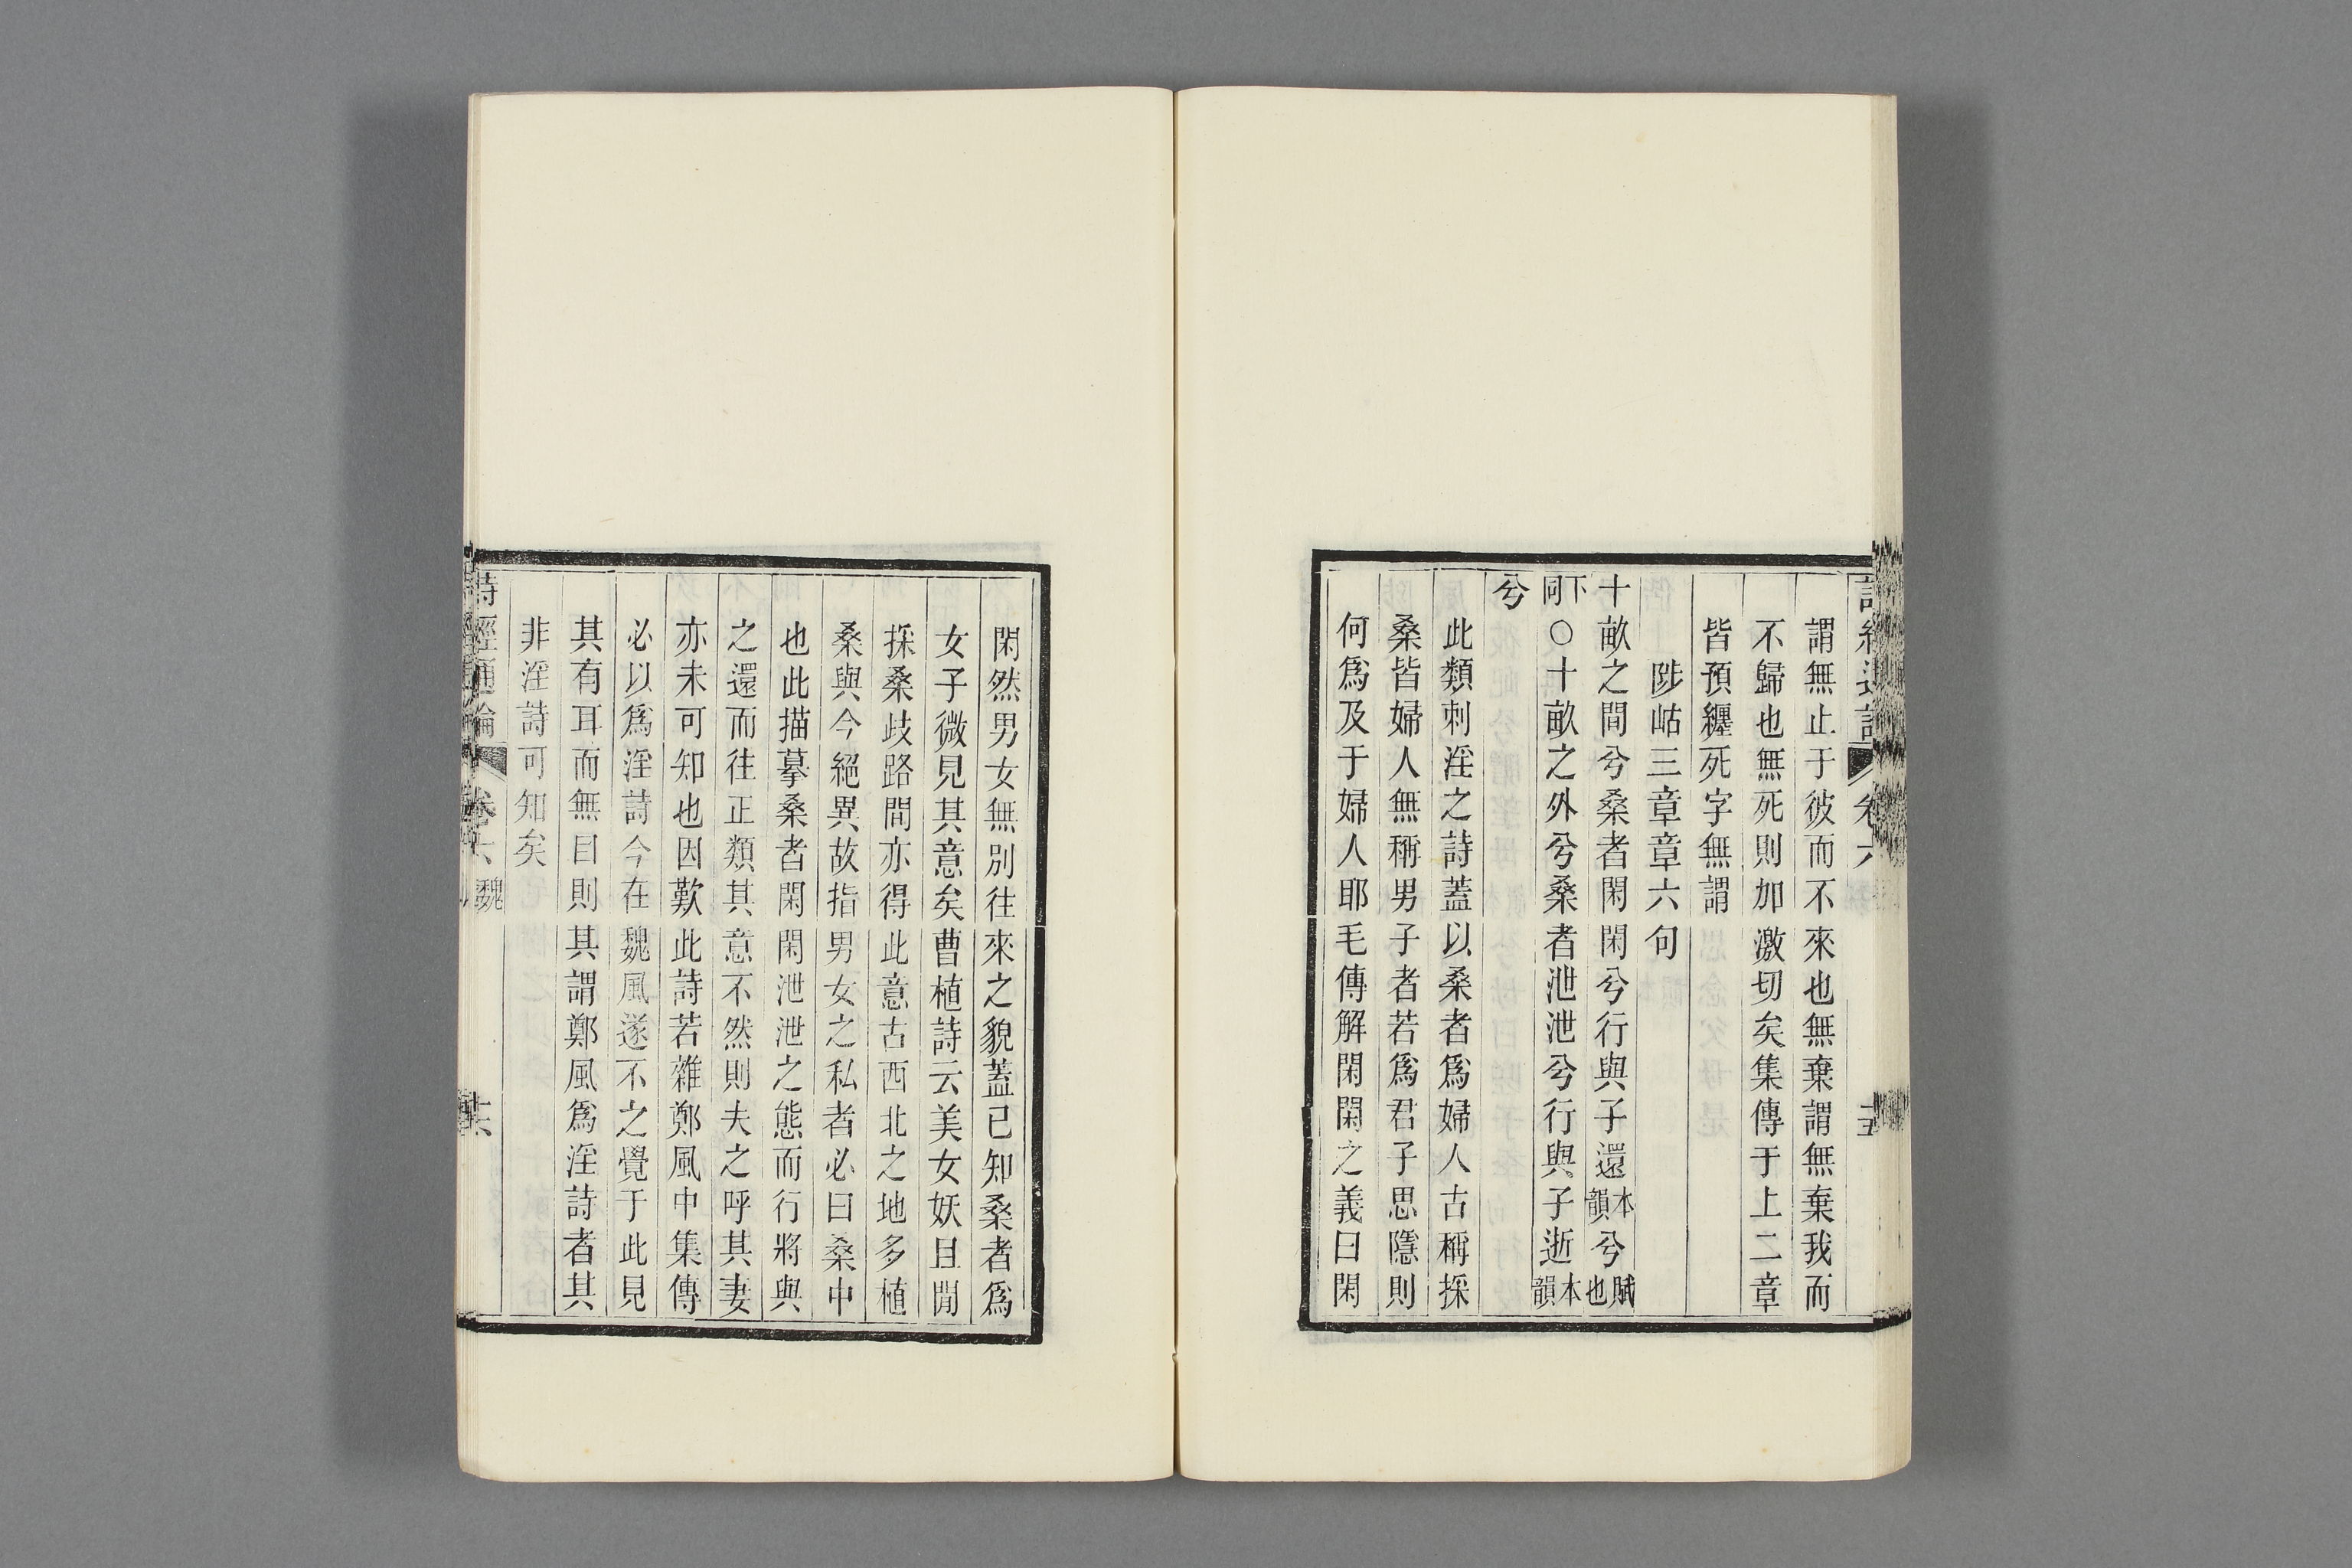 謂無止于彼而不來也無棄謂無棄我而
不歸也無死則加激切矣集傳于上二章
皆預纏死字無謂
陟岵三章章六句
十畝之間兮桑者閑閑兮行與子還本韻兮賦也
下同○十畝之外兮桑者泄泄兮行與子逝本韻
兮
此類刺淫之詩蓋以桑者爲婦人古稱採
桑皆婦人無稱男子者若爲君子思隱則
何爲及于婦人耶毛傳解閑閑之義曰閑
閑然男女無別往來之貌蓋已知桑者爲
女子微見其意矣曹植詩云美女妖且閒
採桑歧路間亦得此意古西北之地多植
桑與今絕異故指男女之私者必曰桑中
也此描摹桑者閑閑泄泄之態而行將與
之還而往正類其意不然則夫之呼其妻
亦未可知也因歎此詩若雜鄭風中集傳
必以爲淫詩今在魏風遂不之覺于此見
其有耳而無目則其謂鄭風爲淫詩者其
非淫詩可知矣
詩經通論 卷六 魏